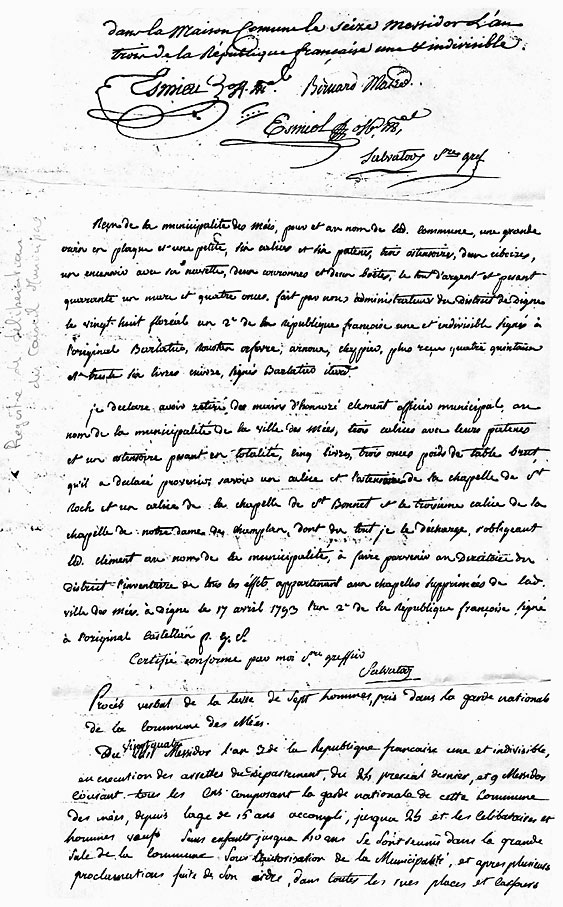 dans la Maison Comune le seize messidor L'an
trois de la République française une & indivisible.
Esmieu off. m.al Bernard Maire
Esmiol off. m.al
Salvator S.re gref
Registre de délibérations
du Conseil Municipal
Reçu de la municipalité des mées, pour et au nom de lad. commune, une grande
croix en plaque et une petite, six calices et six patenes, trois ostensoires, deux ciboires,
un encensoir avec sa navette, deux couronnes et deux boëtes, le tout d'argent et pesant
quarante un marc et quatre onces. fait par nous administrateurs du district de digne
le vingt huit floréal an 2e de la république françoise une et indivisible signés à
l'original Barlatier, orfevre, arnoux, plus reçu quatre quintaux
et trente six livres cuivre, signés Barlatier
je declare avoir retiré des mains d'honnoré clement officier municipal, au
nom de la municipalité de la ville des mées, trois calices avec leurs patenes
et un ostensoire pesant en totalité, cinq livres, trois onces poids de table brut
qu'il a declaré provenir, savoir un calice et l'ostensoire de la chapelle de St
Roch et un calice de la chapelle de St Bonnet et le troisieme calice de la
chapelle de notre dame des champs, dont du tout je le décharge, s'obligeant
led. clément au nom de la municipalité, à faire parvenir au directoire du
district l'inventaire de tous les effets appartenant aux chapelles supprimées de lad.
ville des mées. à digne le 17 avril 1793 l'an 2e de la république françoise signé
à l'original Castellan p. g. s.
Certifié conforme par moi S.re greffier
Salvator
Procès verbal de la levée de sept hommes, pris dans la garde nationale
de la Commune des Mées.
Du vingt quatre Messidor l'an 3 de la République francaise une et indivisible,
en execution des arrettés du département, du 24 present dernier, et 9 Messidor
courant. tous les Cns composant la garde nationale de cette Commune
des mées, depuis l'age de 16 ans accompli, jusqua 25 et les celibataires et
hommes veufs sans enfants jusqua 40 ans se sont reunis dans la grande
sale de la Commune sous l'autorisation de la Municipalité, et apres plusieurs
proclamations faite de son ordre, dans toutes les rues places et carfours